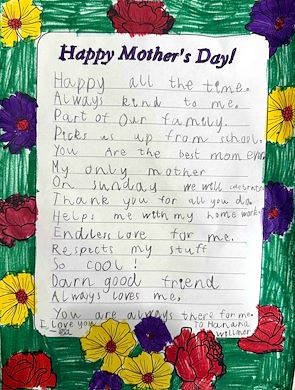 Happy Mother's Day!
Happy all the time.
Always kind to me.
Part of Our family.
Picks us up from school.
You Are the best mom ever
My only mother
On Sunday we will celebrate
Thank you for all you do.
Helps me with my home work
Endless Love for me.
Respects my stuff
So cool!
Darn good friend
Always loves me,
You are always there for me.
I Love you
To Manana